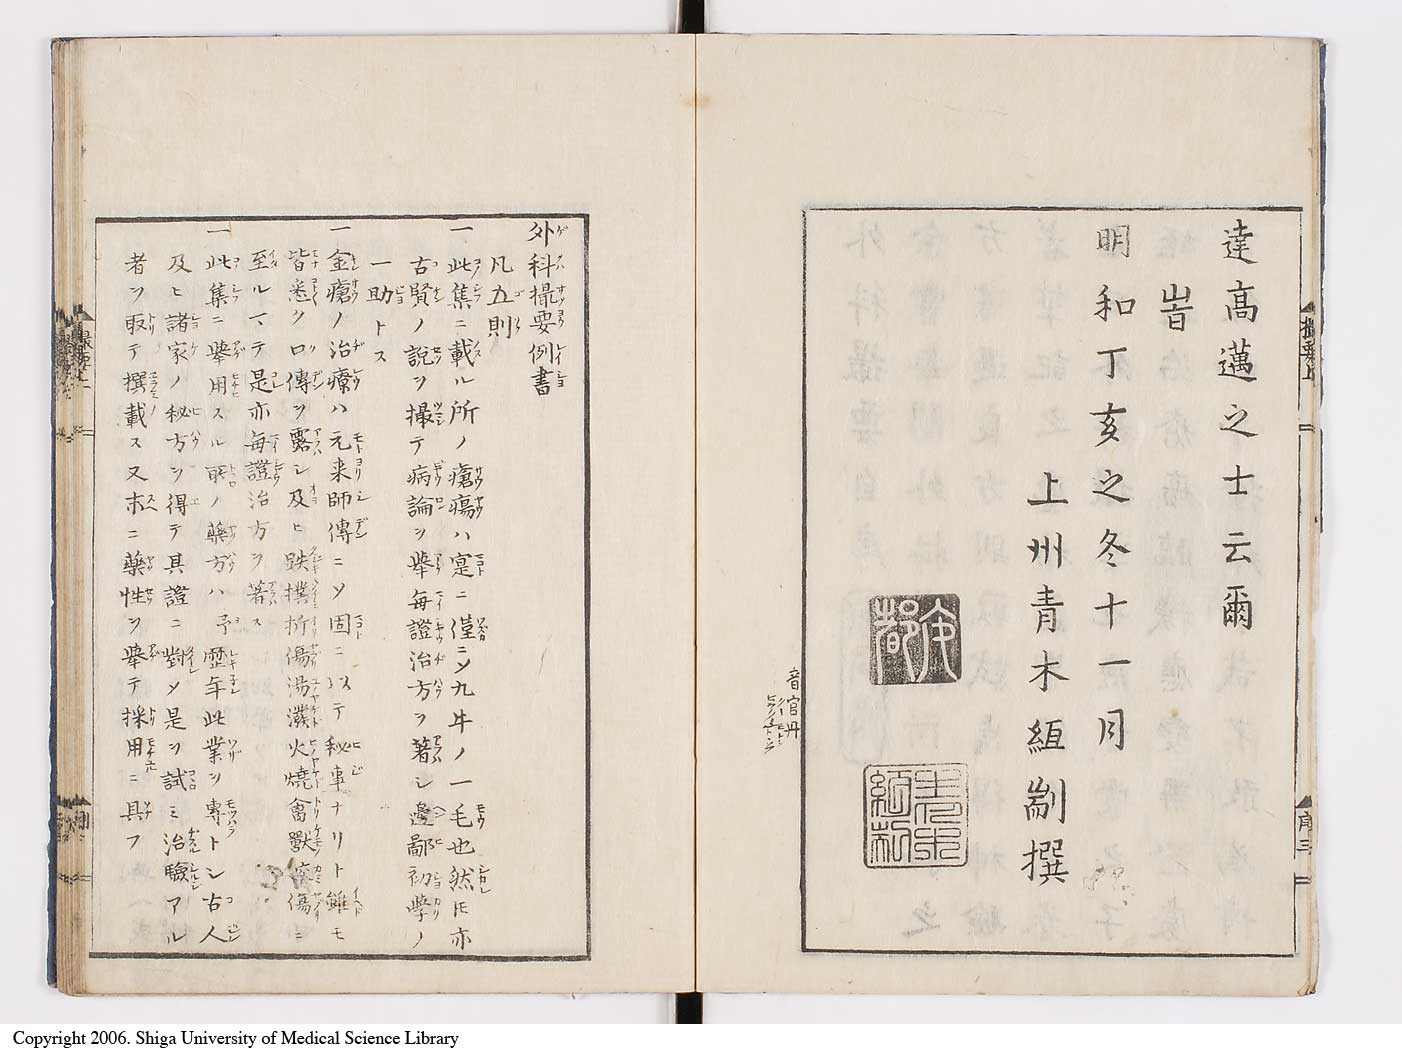 達高邁之士云爾
旹
明和丁亥之冬十一月
上州青木絙剬撰
外科撮要例書
凡五則
一此集ニ載ル所ノ瘡瘍ハ寔ニ僅ニ〆九牛ノ一毛也然𪜈亦
古賢ノ說ヲ撮テ病論ヲ舉每證治方ヲ著シ邊鄙初學ノ
一助トス
一金瘡ノ治療ハ元來師傳ニ〆固ニ以テ秘事ナリト雖モ
皆悉ク口傳ヲ露シ及ヒ跌撲折傷湯潑火燒禽獸 傷ニ
至ルマテ是亦每證治方ヲ著ス
一此集ニ舉用スル所ノ藥方ハ予歷年此業ヲ專トシ古人
及ヒ諸家ノ秘方ヲ得テ其證ニ對〆是ヲ試ミ治驗アル
者ヲ取テ撰載ス又末ニ藥性ヲ舉テ採用ニ具フ
撮要上
序三
Copyright 2006. Shiga University of Medical Science Library